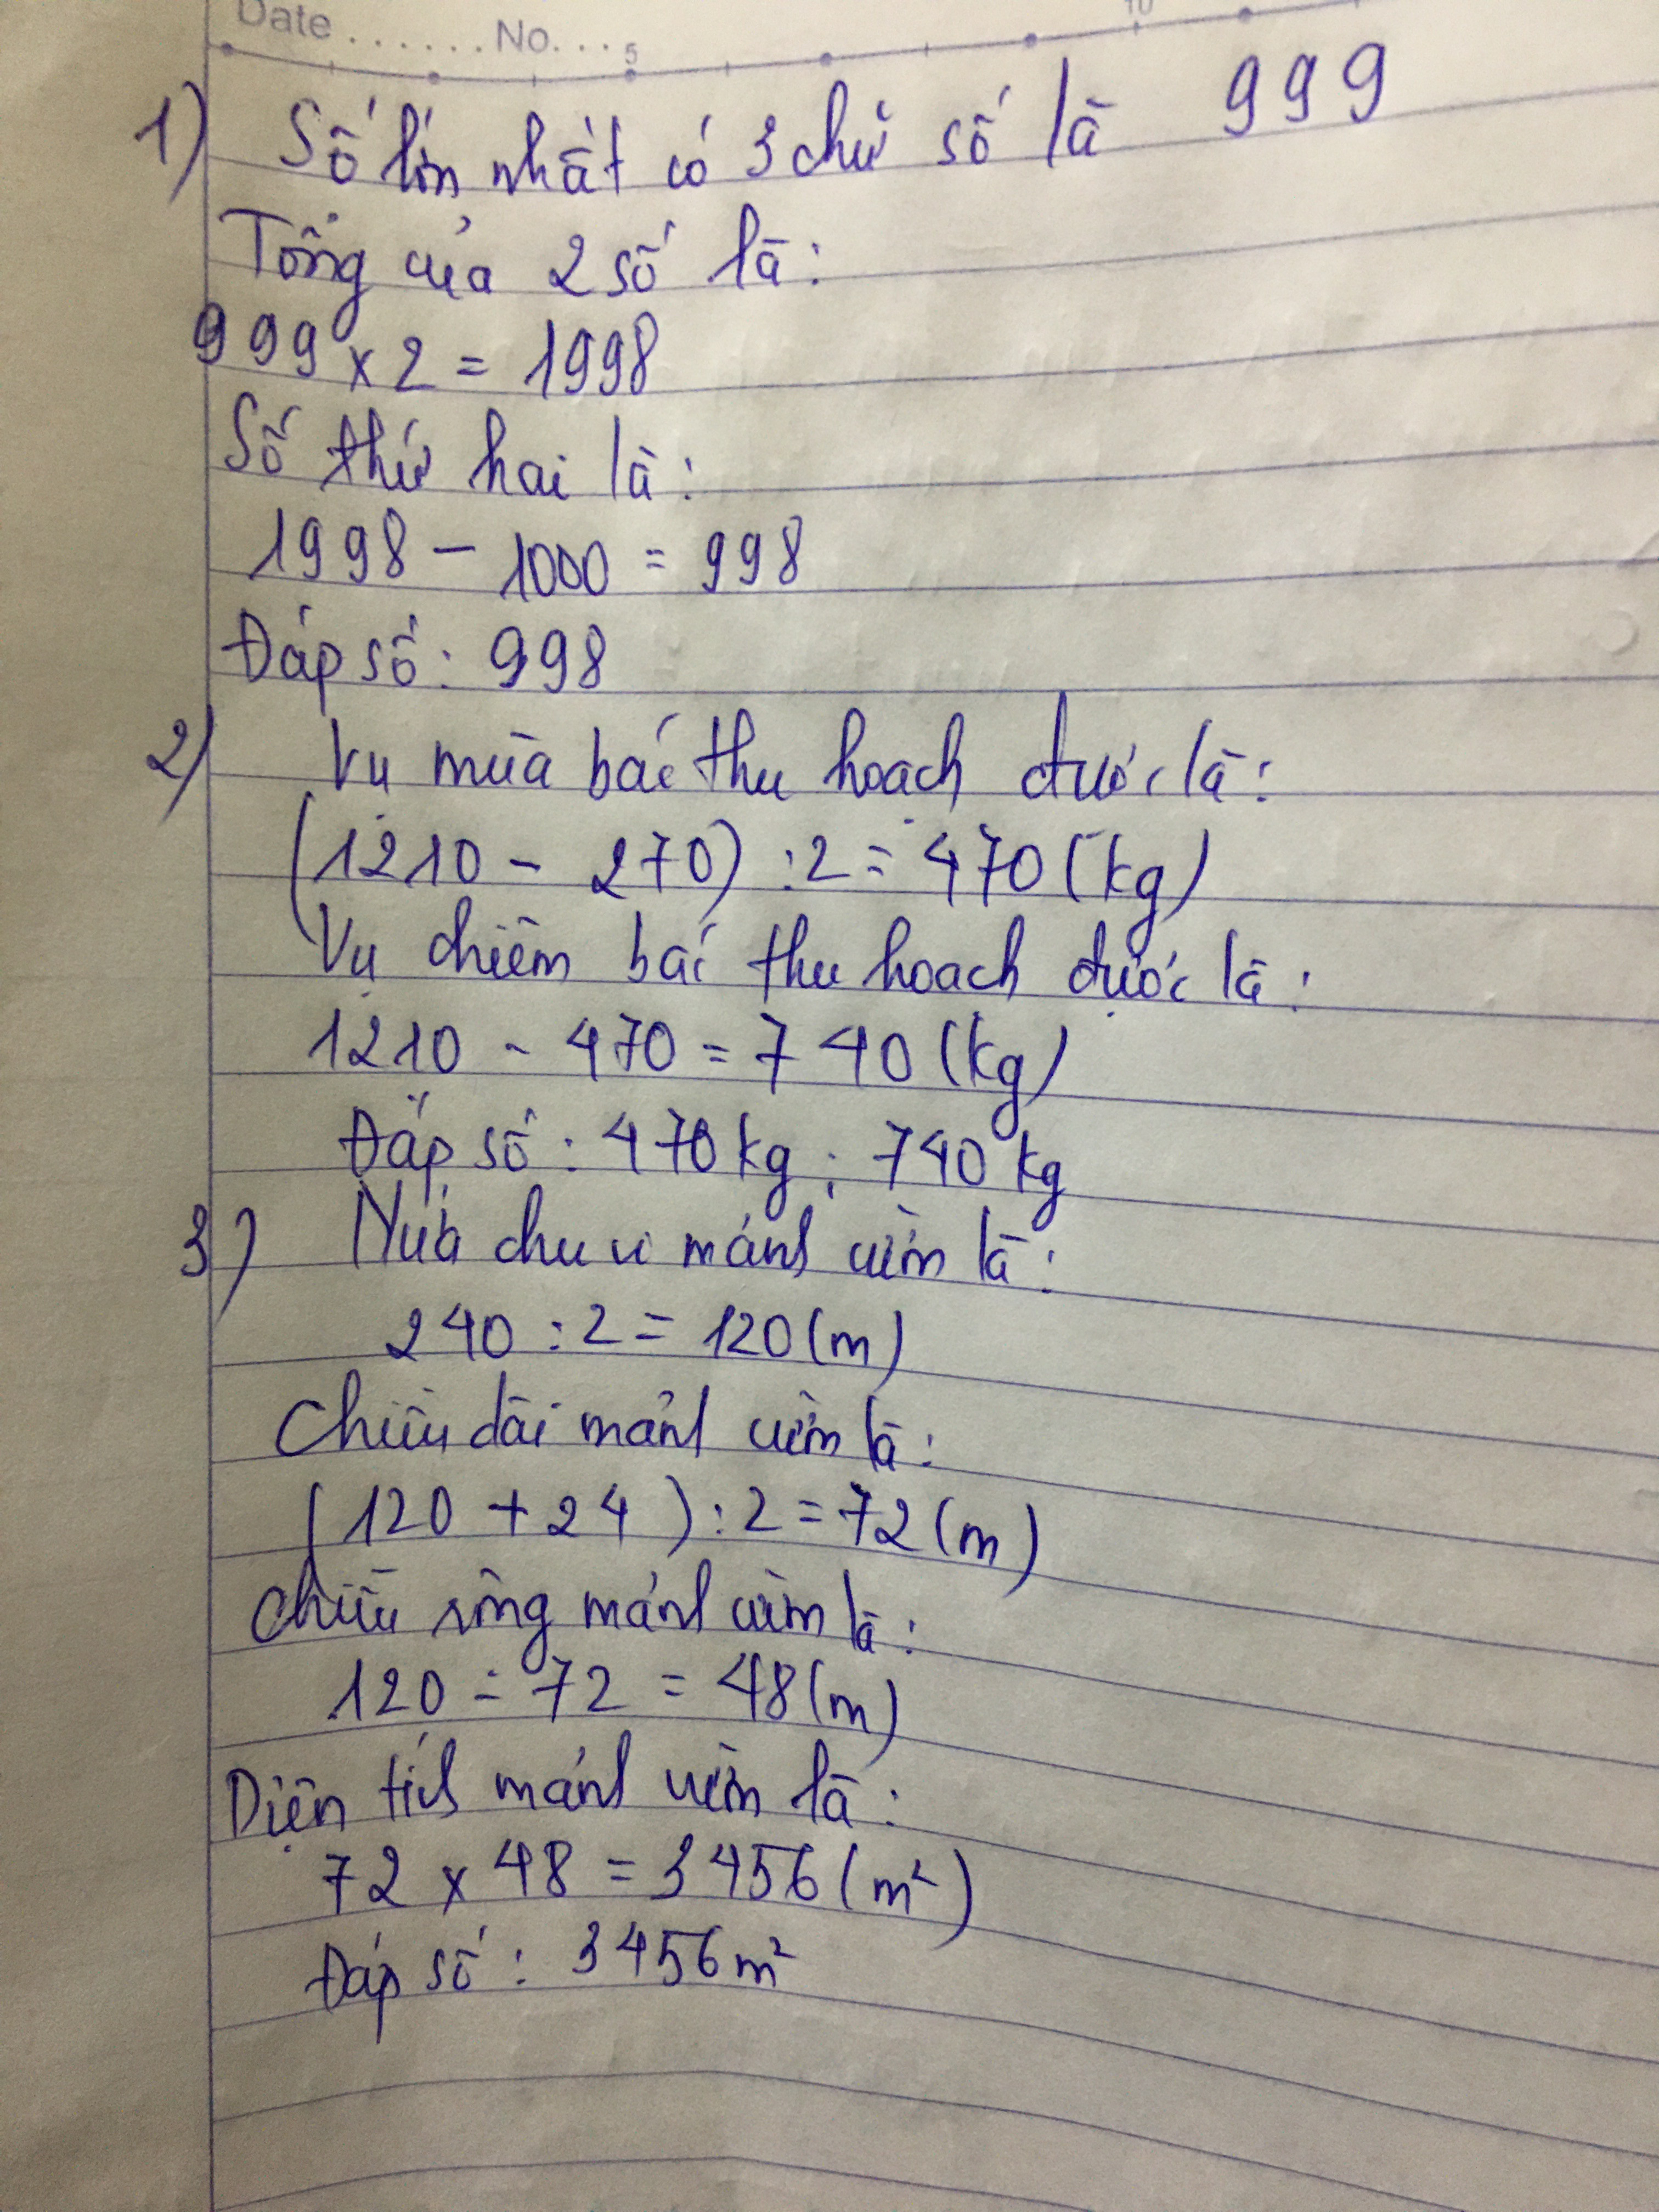 Date ...... No. ... 5 10
1) Số lớn nhất có 3 chữ số là 999
Tổng của 2 số là:
999 x 2 = 1998
Số thứ hai là:
1998 - 1000 = 998
Đáp số: 998
2) Vụ mùa bác thu hoạch được là:
(1210 - 270) : 2 = 470 (kg)
Vụ chiêm bác thu hoạch được là:
1210 - 470 = 740 (kg)
Đáp số: 470 kg; 740 kg
3) Nửa chu vi mảnh vườn là:
240 : 2 = 120 (m)
Chiều dài mảnh vườn là:
(120 + 24) : 2 = 72 (m)
Chiều rộng mảnh vườn là:
120 - 72 = 48 (m)
Diện tích mảnh vườn là:
72 x 48 = 3456 (m²)
Đáp số: 3456 m²